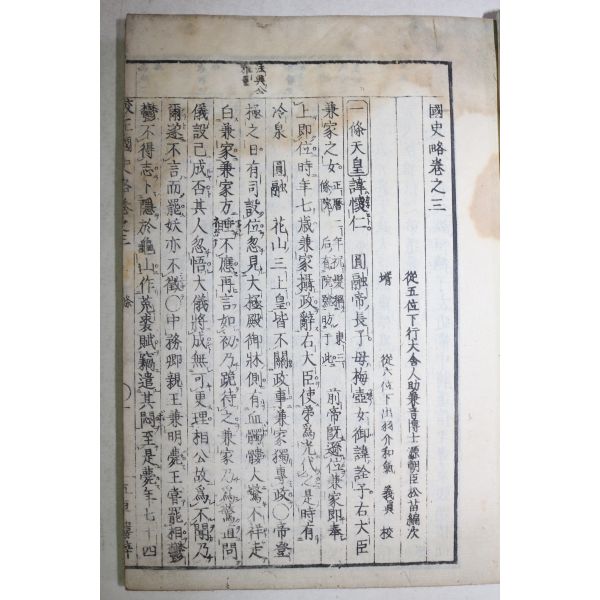 國史略卷之三
從五位下行大舍人助兼音博士巖朝臣松苗編次
壻 從六位下出羽介和氣 義眞 校
一條天皇諱懷仁 圓融帝長子母梅壺女御諱詮子右大臣
兼家之女 前帝既遜位兼家即奉
上即位時年七歲兼家攝政辭右大臣使弟爲光代之是時有
冷泉 圓融 花山三上皇皆不關政事兼家獨專政〇帝登
極之日有司設位忽見大極殿御牀側有血髑髏人驚不祥走
白兼家兼家方睡不應再言如初乃跪待之兼家乃爲驚且問
儀設已成否其人忽悟大儀將成無可更理相公故爲不聞乃
爾遂不言而罷妖亦不徵〇中務卿親王兼明薨王嘗罷相鬱
鬱不得志卜隱於龜山作菟裘賦竊遣其悶至是薨年七十四
校正國史略卷三 一條